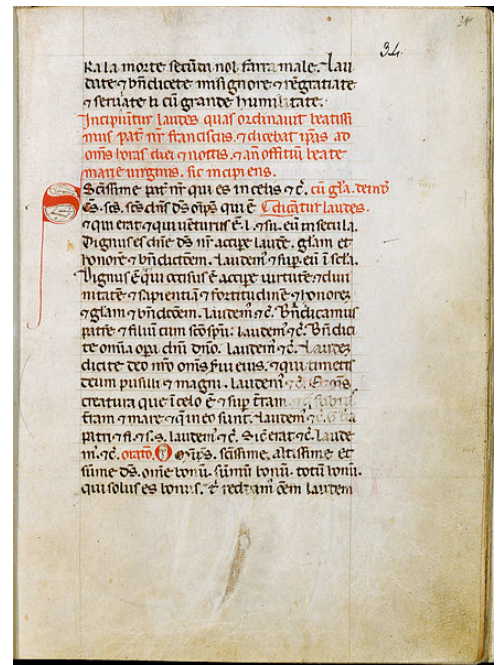 34
34.
Ra la morte secūda nol farra male. Lau
date ⁊ bn̄dicete misignore ⁊ rēgratiate
⁊ seruate li cū grande humilitate.
Incipiūtur laudes quas ordinauit beatissi
mus pat̄ nr̄ franciscus, ⁊ dicebat ip̄as ad
om̄s horas diei ⁊ noctis. ⁊ an̄ offitiū beate
marie uirginis. sic incipiens.
Sc̄issime pat̄ nr̄ qui es in celis ⁊ c̄. cū gl̄a. deinđ
Sc̄s. sc̄s. sc̄s dn̄s ds̄ om̄ps qui ē Dicāt̄ur laudes.
⁊ qui erat ⁊ qui uēturus ē. l. ⁊ su. eū in secula.
Dignus es dn̄e ds̄ nr̄ accipe laudē. gl̄am et
honorē ⁊ bn̄dictōem. Laudem̄ ⁊ sup eū ī sc̄la.
Dignus ē qui occisus ē accipe uirtutē ⁊ diui
nitatē ⁊ sapientiā ⁊ fortitudinē ⁊ honorez
⁊ gl̄am ⁊ bn̄dictōem. Laudem̄ ⁊ c̄. Bn̄dicamus
patrē ⁊ filiū cum sc̄o sp̄u: laudem̄ ⁊ c̄. Bn̄dici
te om̄ia opa dn̄i dn̄o. Laudem̄ ⁊ c̄. Laudez
dicite deo nr̄o om̄s serui eius. ⁊ qui timetis
deum pusilli ⁊ magni. Laudem̄ ⁊ c̄.
creatura que ī celo ē ⁊ sup t̄ram
t̄ram ⁊ mare ⁊ q̄ in eo sunt. Laudem̄ ⁊ c̄. Gl̄a
patri ⁊ fi. ⁊ s. s. laudem̄ ⁊ c̄. Sic̄ erat ⁊ c̄. Laude
m̄. ⁊ c̄. orat̄o. Om̄ps. sc̄issime, altissime et
sūme ds̄. om̄e bonū. sūmū bonū. totū bonū.
qui solus es bonus. t̄ reddam̄ om̄em laudem